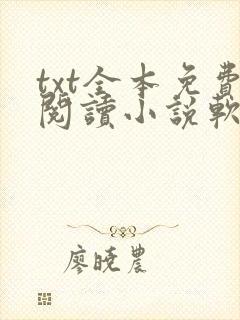 txt全本免費
閱讀小說軟
廖曉農